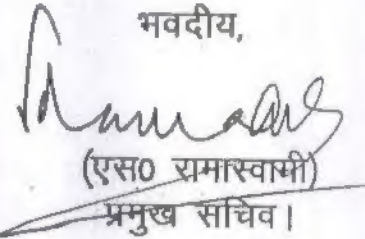 भवदीय,
(एस0 रामास्वामी)
प्रमुख सचिव।